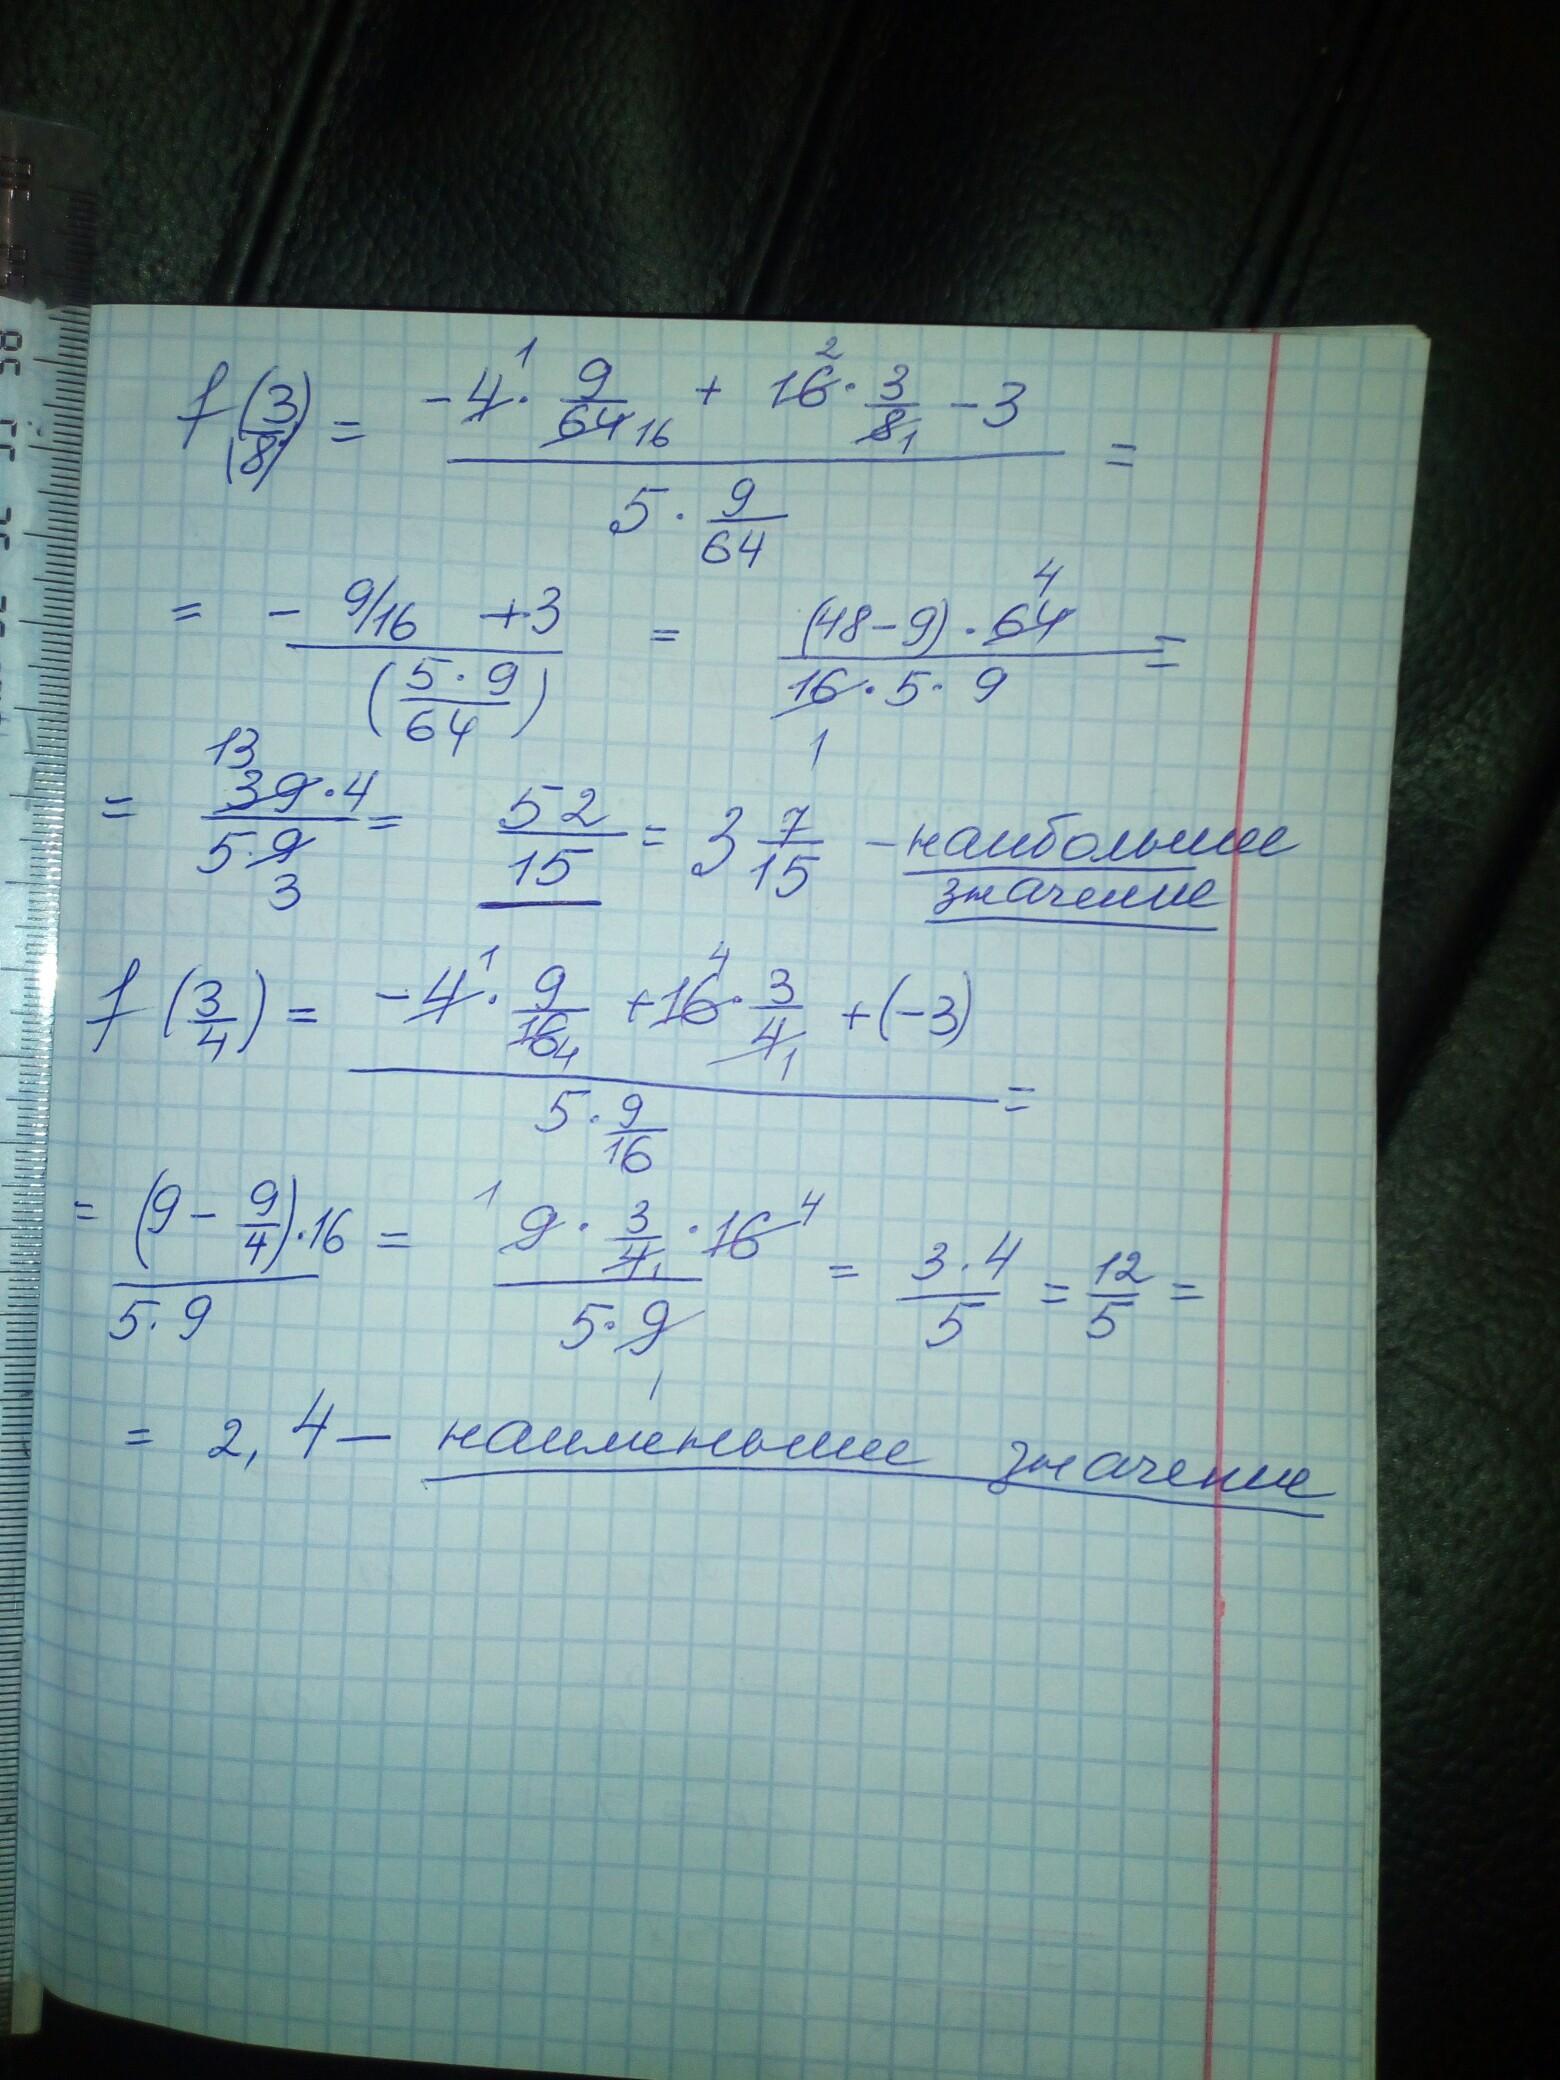 f(3/8) = (-4¹ · 9/64 16 + 16² · 3/8 1 - 3) / (5 · 9/64) =
= (- 9/16 + 3) / (5 · 9 / 64) = ((48 - 9) · 64 4) / (16 1 · 5 · 9) =
= (39 13 · 4) / (5 · 9 3) = 52/15 = 3 7/15 - наибольшее
значение
f(3/4) = (-4¹ · 9/16 4 + 16 4 · 3/4 1 + (-3)) / (5 · 9/16) =
= ((9 - 9/4) · 16) / (5 · 9) = (¹ 9 · 3/4 1 · 16 4) / (5 · 9 1) = (3 · 4)/5 = 12/5 =
= 2,4 — наименьшее значение